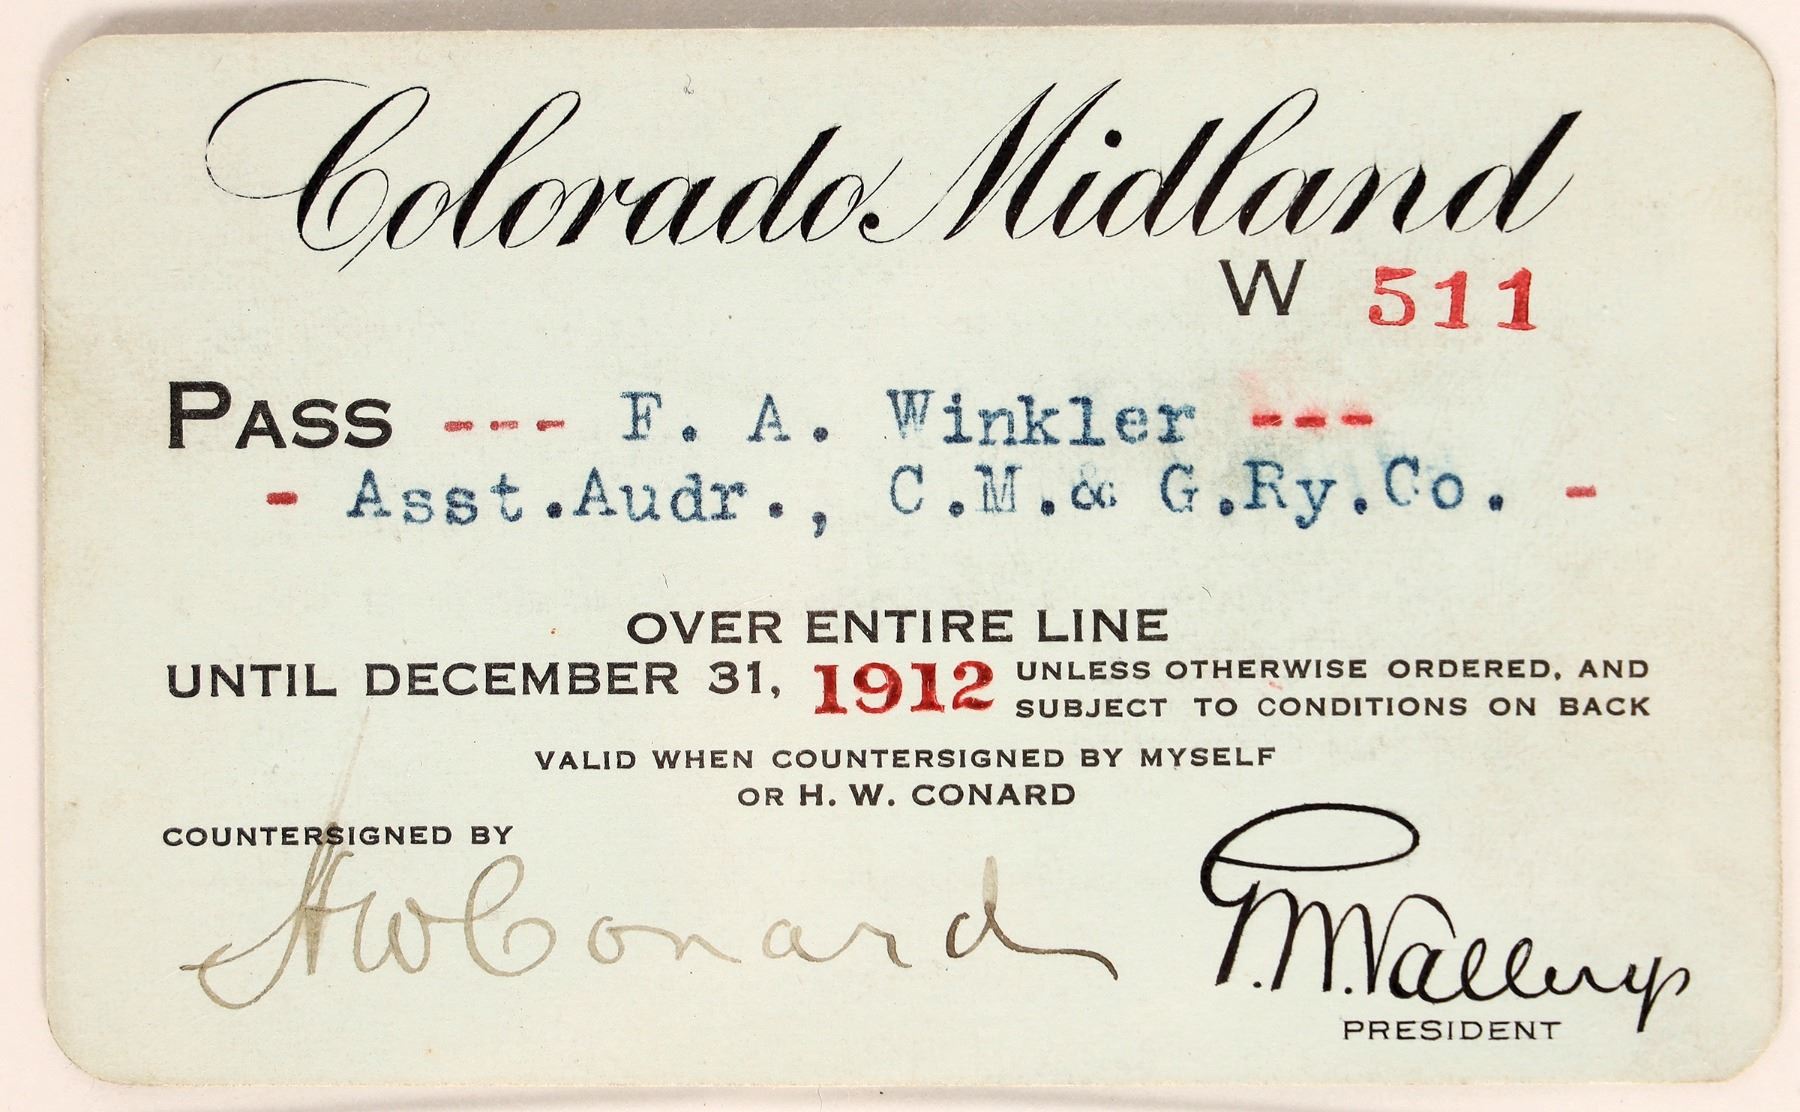 Colorado Midland
W 511
PASS --- F. A. Winkler ---
- Asst.Audr., C.M.& G.Ry.Co. -
OVER ENTIRE LINE
UNTIL DECEMBER 31, 1912 UNLESS OTHERWISE ORDERED, AND
SUBJECT TO CONDITIONS ON BACK
VALID WHEN COUNTERSIGNED BY MYSELF
OR H. W. CONARD
COUNTERSIGNED BY
HW Conard
G.M.Vallery
PRESIDENT